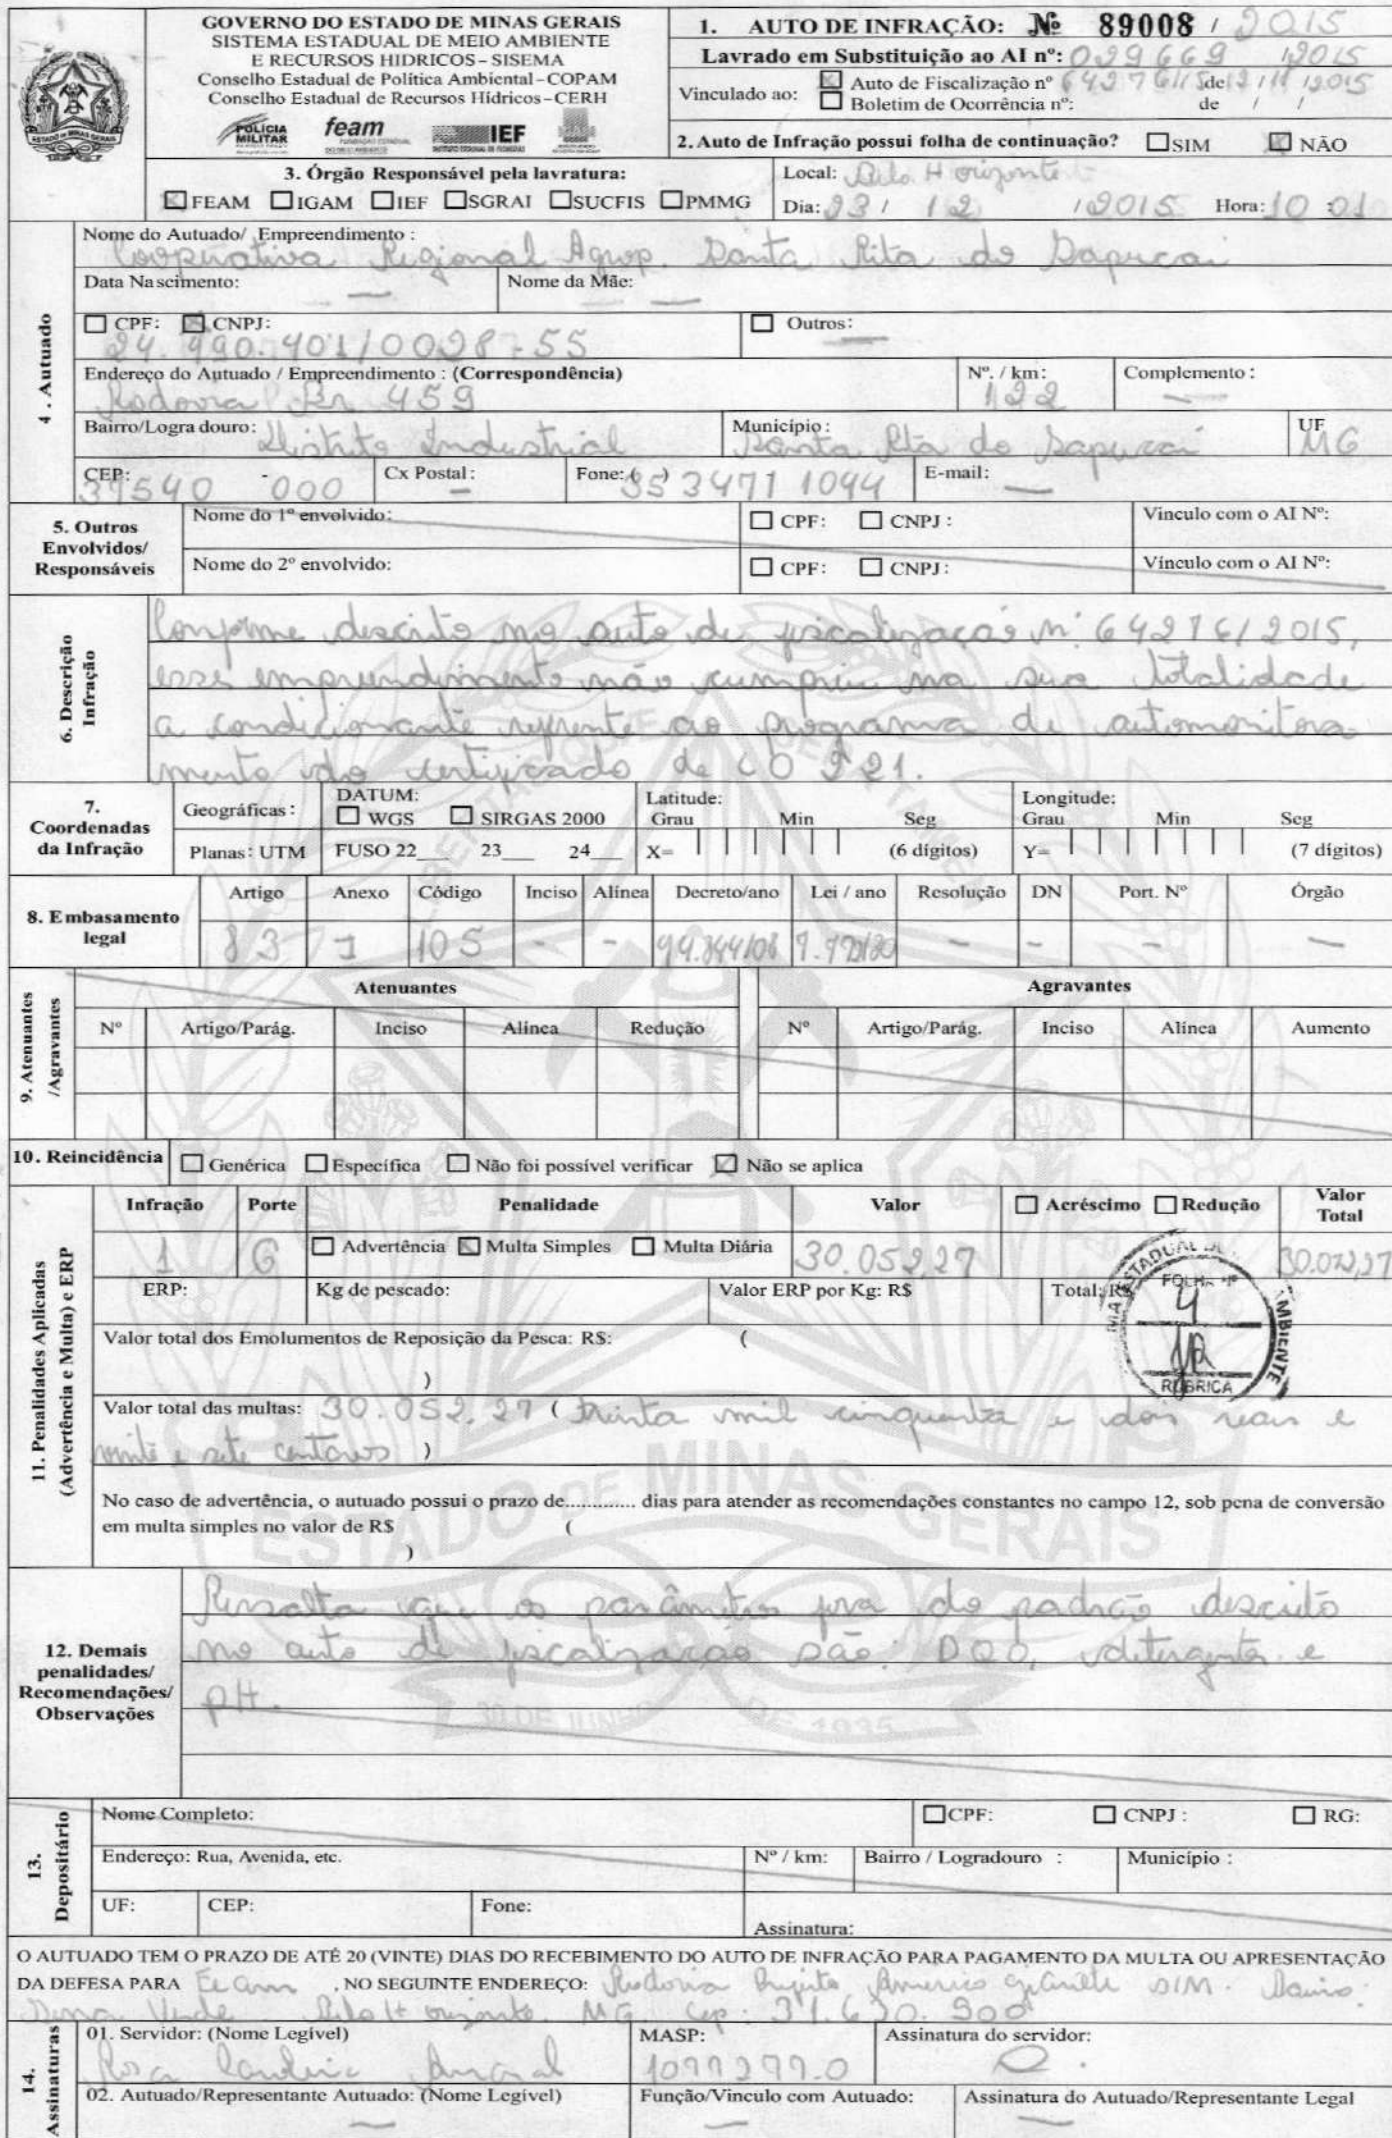 GOVERNO DO ESTADO DE MINAS GERAIS
SISTEMA ESTADUAL DE MEIO AMBIENTE
E RECURSOS HIDRICOS – SISEMA
Conselho Estadual de Política Ambiental – COPAM
Conselho Estadual de Recursos Hídricos – CERH
POLICIA MILITAR feam IEF
1. AUTO DE INFRAÇÃO: Nº 89008 / 2015
Lavrado em Substituição ao AI nº: 029669 /2015
Vinculado ao: Auto de Fiscalização nº 64276/15 de 12/11/2015
Boletim de Ocorrência nº: de / /
2. Auto de Infração possui folha de continuação? SIM NÃO
3. Órgão Responsável pela lavratura:
FEAM IGAM IEF SGRAI SUCFIS PMMG
Local: Belo Horizonte
Dia: 23 / 12 / 2015 Hora: 10 : 01
4. Autuado
Nome do Autuado/ Empreendimento :
Cooperativa Regional Agrop. Santa Rita do Sapucai
Data Nascimento: — Nome da Mãe: —
CPF: CNPJ: Outros: —
24.490.401/0028-55
Endereço do Autuado / Empreendimento : (Correspondência) Nº. / km: Complemento :
Rodovia Br 459 122 —
Bairro/Logradouro: Distrito Industrial Município : Santa Rita do Sapucai UF MG
CEP: 37540 - 000 Cx Postal: — Fone: ( ) 35 3471 1044 E-mail: —
5. Outros Envolvidos/ Responsáveis
Nome do 1º envolvido: CPF: CNPJ : Vinculo com o AI Nº:
Nome do 2º envolvido: CPF: CNPJ : Vínculo com o AI Nº:
6. Descrição Infração
Conforme descrito no auto de fiscalização nº 64276/2015,
esse empreendimento não cumpriu na sua totalidade
a condicionante refrente ao programa de automonitora-
mento do certificado de LO 221.
7. Coordenadas da Infração
Geográficas : DATUM: WGS SIRGAS 2000 Latitude: Grau Min Seg Longitude: Grau Min Seg
Planas: UTM FUSO 22 23 24 X= (6 dígitos) Y= (7 dígitos)
8. Embasamento legal
Artigo Anexo Código Inciso Alínea Decreto/ano Lei / ano Resolução DN Port. Nº Órgão
83 I 105 - - 44.844/08 7.772/80 - - - —
9. Atenuantes /Agravantes
Atenuantes Agravantes
Nº Artigo/Parág. Inciso Alínea Redução Nº Artigo/Parág. Inciso Alínea Aumento
10. Reincidência Genérica Específica Não foi possível verificar Não se aplica
11. Penalidades Aplicadas (Advertência e Multa) e ERP
Infração Porte Penalidade Valor Acréscimo Redução Valor Total
1 G Advertência Multa Simples Multa Diária 30.052,27 30.052,27
ERP: Kg de pescado: Valor ERP por Kg: R$ Total: R$
FOLHA Nº
4
RUBRICA
Valor total dos Emolumentos de Reposição da Pesca: R$: (
)
Valor total das multas: 30.052,27 ( trinta mil cinquenta e dois reais e
vinte e sete centavos )
No caso de advertência, o autuado possui o prazo de............. dias para atender as recomendações constantes no campo 12, sob pena de conversão
em multa simples no valor de R$ (
)
12. Demais penalidades/ Recomendações/ Observações
Ressalta que os parâmetros fora do padrão descrito
no auto de fiscalização são: DQO, detergentes e
pH.
ESTADO DE MINAS GERAIS
13. Depositário
Nome Completo: CPF: CNPJ : RG:
Endereço: Rua, Avenida, etc. Nº / km: Bairro / Logradouro : Município :
UF: CEP: Fone: Assinatura:
O AUTUADO TEM O PRAZO DE ATÉ 20 (VINTE) DIAS DO RECEBIMENTO DO AUTO DE INFRAÇÃO PARA PAGAMENTO DA MULTA OU APRESENTAÇÃO
DA DEFESA PARA Feam , NO SEGUINTE ENDEREÇO: Rodovia Prefeito Americo Gianetti S/N. Bairro:
Serra Verde Belo Horizonte. MG Cep: 31.630.900
14. Assinaturas
01. Servidor: (Nome Legível) MASP: Assinatura do servidor:
Rosa Amaral 1077277.0
02. Autuado/Representante Autuado: (Nome Legível) Função/Vinculo com Autuado: Assinatura do Autuado/Representante Legal
— — —